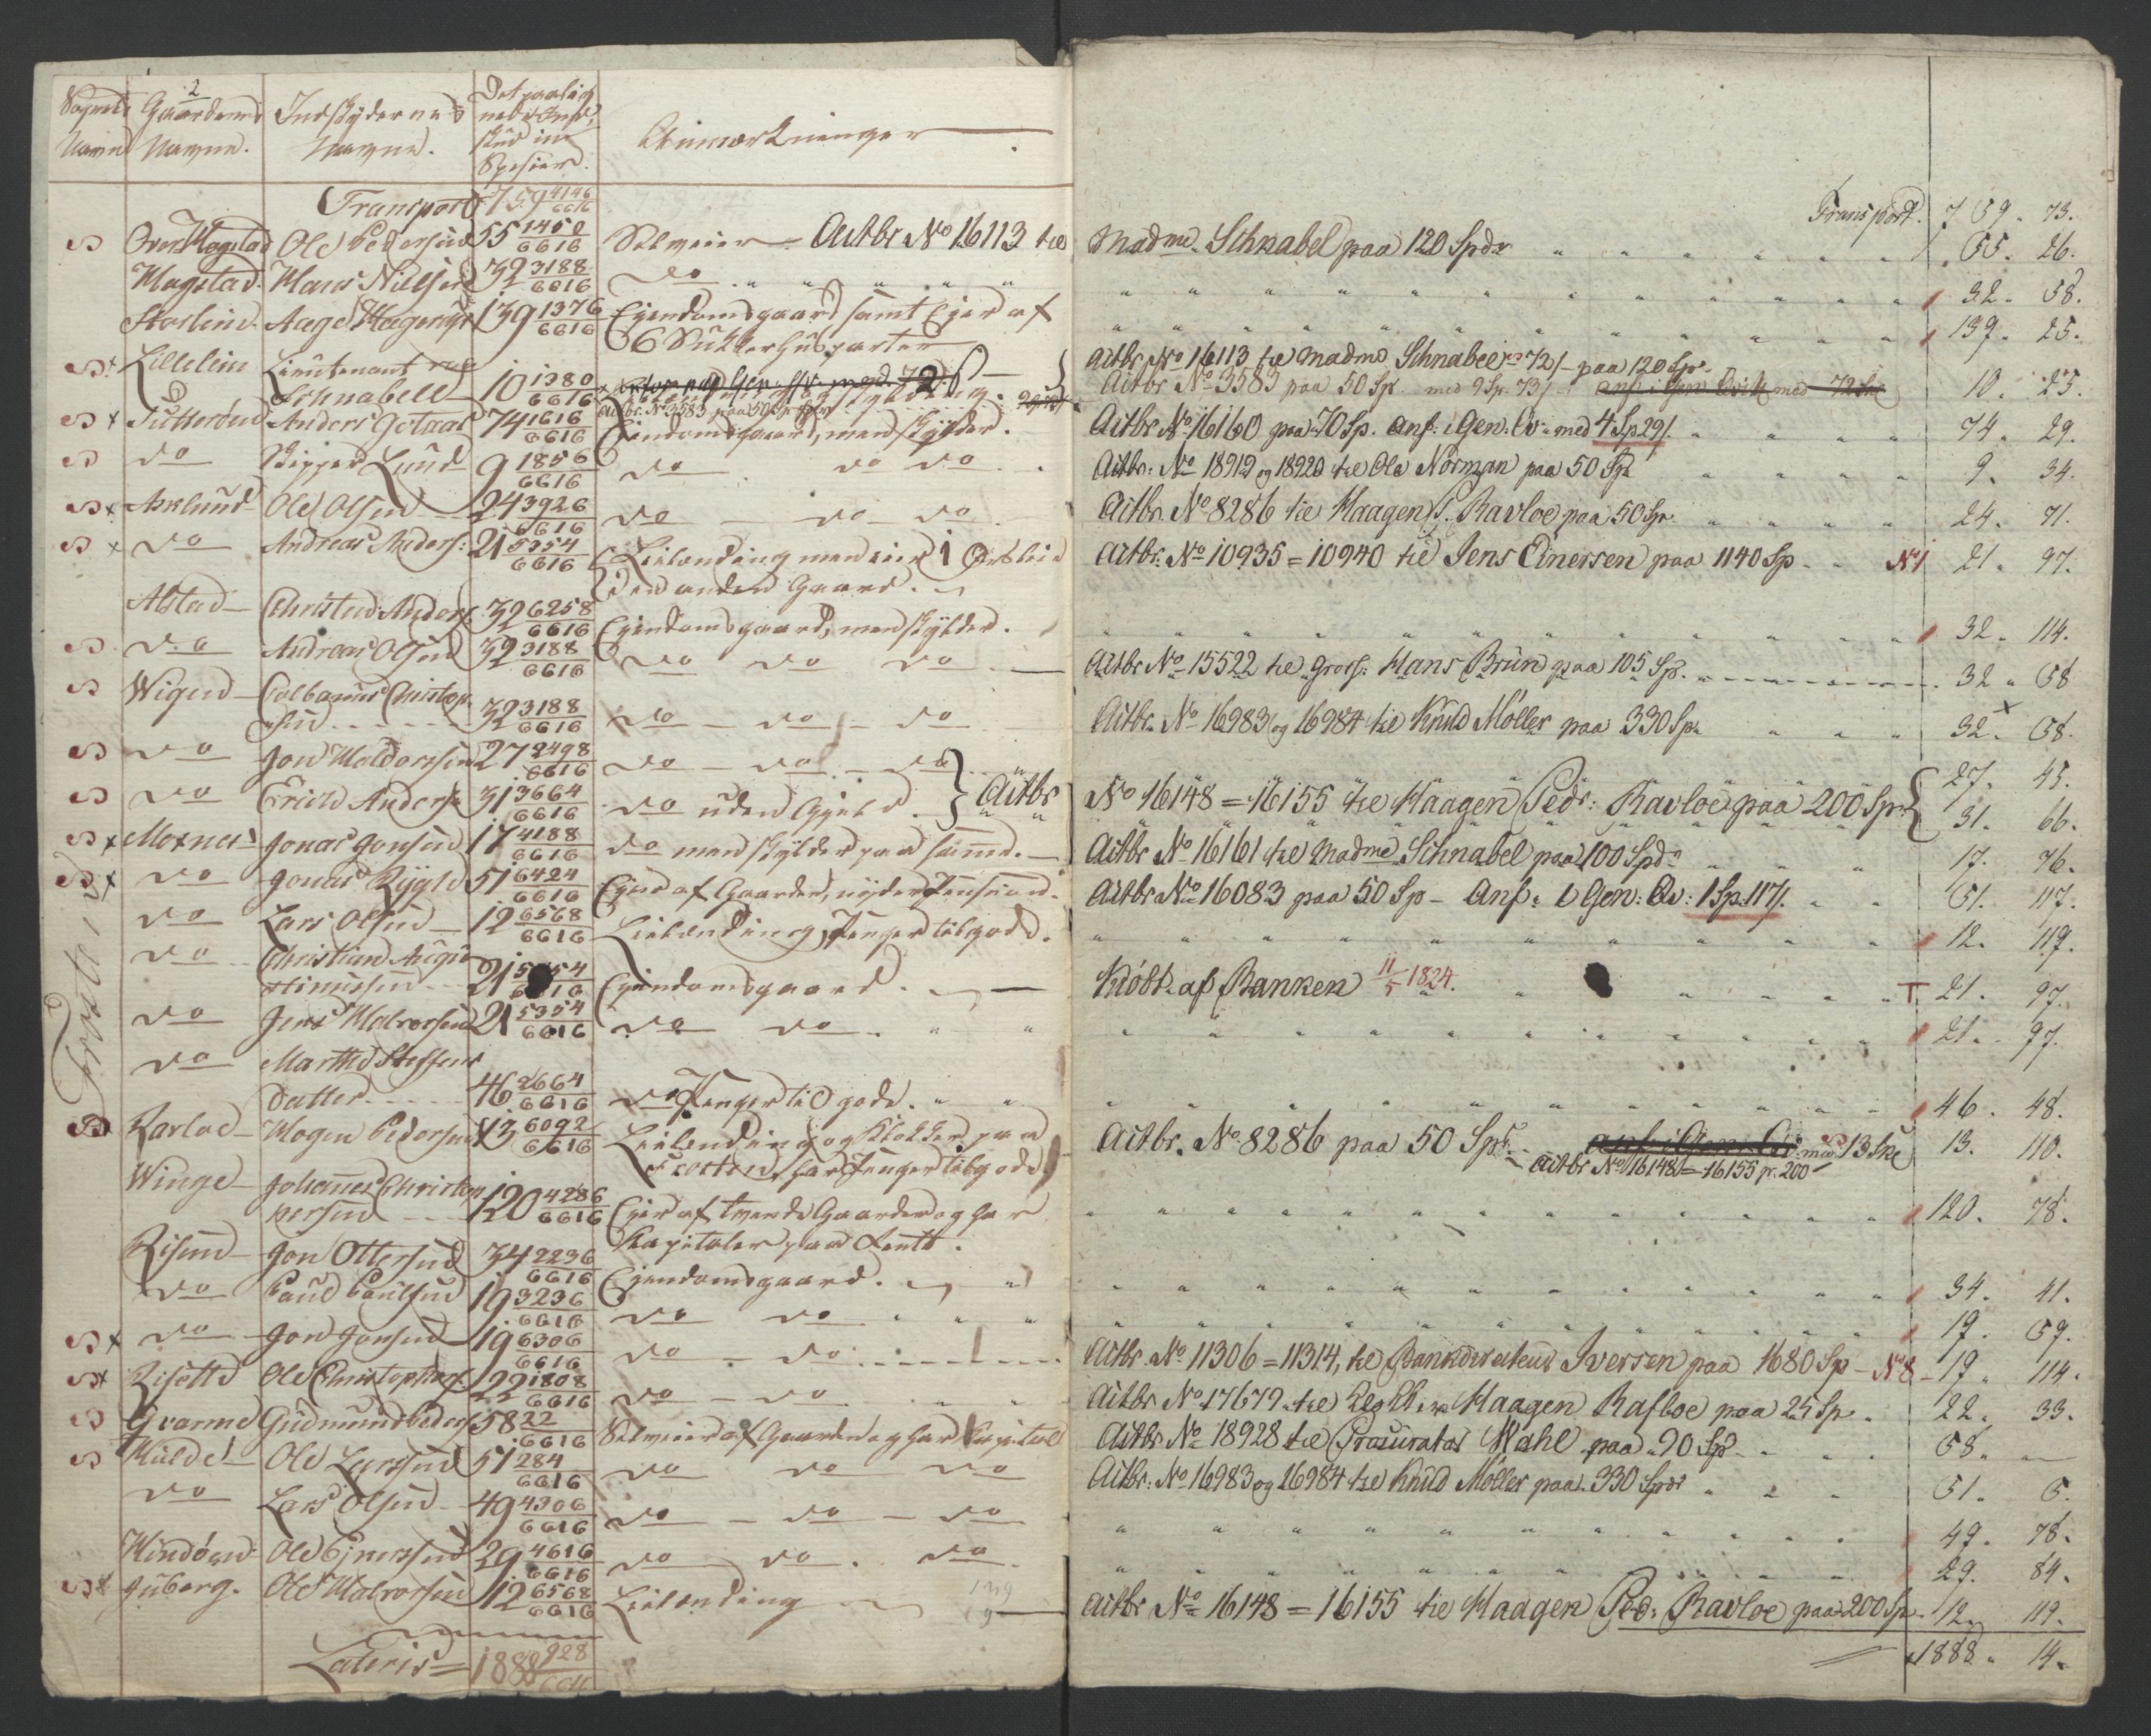 2
Sognets Navn | Gaardens Navne. | Indskydernes Navne. | Det paalignede Indskud in Species. | Anmærkninger
Transport 759 4146/6616 | Transport. 759. 73.
Ole Pedersen 55 1450/6616 Selveier – Actbr No 16113 til Madme. Schnabel paa 120 Spdr 55. 26.
Magstad. Hans Nielsen 32 3188/6616 do " " " 32. 58.
Storlein. Aage Hagerup 139 1376/6616 Eyendomsgaard samt Eyer af 139. 25.
6 Sukkerhusparter
Lillelein Lieutenant
Schnabell 10 1380/6616 Actbr. No 3583 paa 50 Sp
Actbr No 16113 til Madme Schnabel paa 120 Sp.
Actbr No 3583 paa 50 Sp. med 9 Sp. 73 10. 25.
Anders Getaas 74 1616/6616 Eiendomsgaard, men skylder. Actbr No 16160 paa 70 Sp. Anf. i Gen: Qv. med 4 Sp 29 74. 29.
do Skipper Lund 9 1856/6616 do do do Actbr: No 18919 og 18920 til Ole Norman paa 50 Sp 9. 34.
Asklund Ole Olsen 24 3926/6616 do do do Actbr. No 8286 til Haagen P. Ravloe paa 50 Sp. 24. 71.
do Andreas Anders: 21 5354/6616 Leilending men eier i Actbr: No 10935=10940 til Jens Einersen paa 1140 Sp. No 1 21. 97.
den anden Gaard.
Alstad Christen Anders. 32 6258/6616 Eyendomsgaard, men skylder. 32. 114.
do Andreas Olsen 32 3188/6616 do do do Actbr No 15522 til Gross: Hans Brun paa 105 Sp. 32. 58
Wigen Colbanus Christop
sen 32 3188/6616 do do do Actbr. No 16983 og 16984 til Knud Møller paa 330 Sp. 32. 58.
do Jon Haldorssen 27 2498/6616 do do do 27. 45.
do Erich Anders. 31 3664/6616 do uden Gjeld. } Actbr No 16148=16155 til Haagen Ped: Ravloe paa 200 Sp. 31. 66.
Moxnes Jonas Jonsen 17 4188/6616 do men skylder paa samme. Actbr No 16161 til Madme Schnabel paa 100 Spd. 17. 76.
do Jonas Rygh 51 6424/6616 Eyer af Gaarden, nyder Pension. Actbr No 16083 paa 50 Sp – Anf. i Gen: Qv: 1 Sp. 117. 51. 117.
do Lars Olsen 12 6568/6616 Leilending, Penger tilgode. 12. 119.
do Christian Augu
stinussen 21 5354/6616 Eyendomsgaard. Kiøbt af Banken 11/5 1824. T 21. 97.
do Jens Halvorsen 21 5354/6616 do do. 21. 97.
do Marthe Steffens
datter 46 2664/6616 do Penger til gode. 46. 48.
Ravloe Hogen Pedersen 13 6092/6616 Leilending og Klokker paa Actbr. No 8286 paa 50 Spd. 13 Sk 13. 110.
Frosten, har Penger tilgode Actbr No 16148=16155 p. 200
Winge Johannes Christop
hersen 120 4286/6616 Eyer af tvende Gaarder og har 120. 78.
Kapitaler paa Rente.
Risen Jon Ottersen 34 2236/6616 Eyendomsgaard. 34. 41.
do Paul Paulsen 19 3236/6616 do do 19. 59.
do Jon Jonsen 19 6306/6616 do do Actbr. No 11306=11314, til Bankdirekteur Iversen paa 1680 Sp – No 8 19. 114.
Risette Ole Christophers. 22 1808/6616 do do Actbr No 17679 til Klokker Haagen Rafloe paa 25 Sp. 22. 33.
Gvarme Gudmund Peders. 58 22/6616 Selveier af Gaarden og har Capital Actbr No 18928 til Procurator Wahl paa 90 Sp. 58.
Hulde Ole Larssen 51 284/6616 do do do Actbr: No 16983 og 16984 til Knud Møller paa 330 Spdr 51. 5.
do Lars Olsen 49 4306/6616 do do do 49. 78.
Ole Ejnersen 29 4616/6616 do do do 29. 84.
Juberg. Ole Halvorsen 12 6568/6616 Leilending Actbr No 16148=16155 til Haagen Ped. Ravloe paa 200 Sp. 12. 119.
Lateris = 1888 928/6616 1888. 14.
Frosten